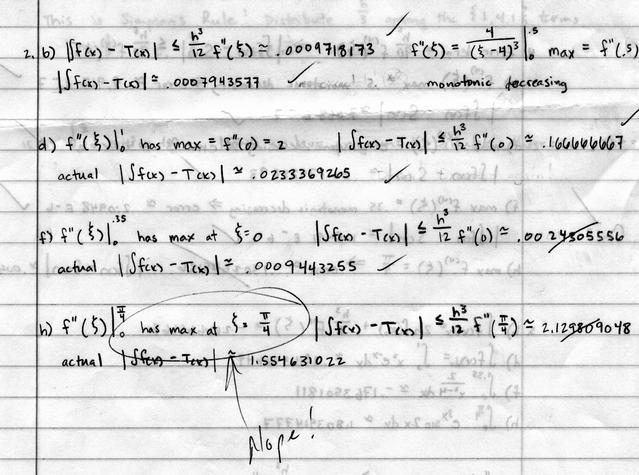 This is Simpson's Rule! Distribute h/3 among the {1,4,1} terms,
2. b) |∫f(x) - T(x)| ≤ h³/12 f"(ξ) ≃ .0009718173 f"(ξ) = 4/(ξ-4)³ |₀^.5 max = f"(.5)
|∫f(x) - T(x)| ≃ .0007943577 monotonic decreasing
d) f"(ξ)|₀¹ has max = f"(0) = 2 |∫f(x) - T(x)| ≤ h³/12 f"(0) ≃ .166666667
actual |∫f(x) - T(x)| ≃ .0233369265
f) f"(ξ)|₀^.35 has max at ξ=0 |∫f(x) - T(x)| ≤ h³/12 f"(0) ≃ .0024305556
actual |∫f(x) - T(x)| ≃ .0009443255
h) f"(ξ)|₀^π/4 has max at ξ = π/4 |∫f(x) - T(x)| ≤ h³/12 f"(π/4) ≃ 2.129809048
actual |∫f(x) - T(x)| ≃ 1.554631022
Nope!